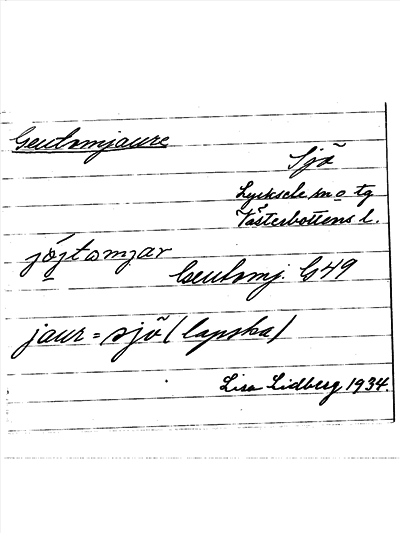 Geutsmjaure
Sjö
Lycksele sn o tg
Västerbottens l.
jöjtsmjar
Geutsmj. G49
jaur = sjö (lapska)
Lisa Lidberg 1934.